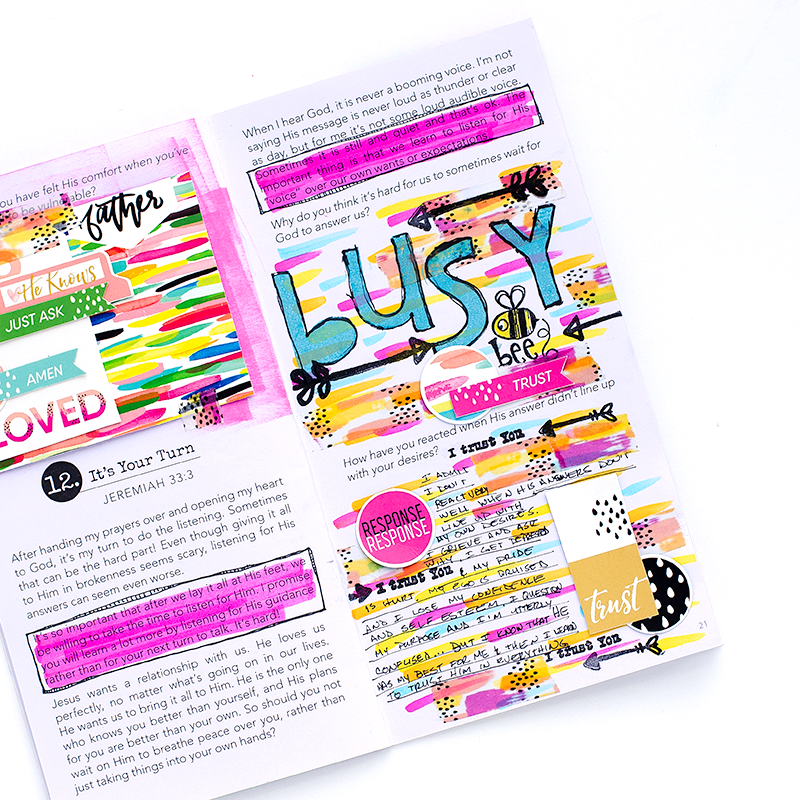 you have felt His comfort when you've
to be vulnerable?
father
He Knows
JUST ASK
AMEN
LOVED
12. It's Your Turn
JEREMIAH 33:3
After handing my prayers over and opening my heart
to God, it's my turn to do the listening. Sometimes
that can be the hard part! Even though giving it all
to Him in brokenness seems scary, listening for His
answers can seem even worse.
It's so important that after we lay it all at His feet, we
be willing to take the time to listen for Him. I promise
you will learn a lot more by listening for His guidance
rather than for your next turn to talk. It's hard!
Jesus wants a relationship with us. He loves us
perfectly, no matter what's going on in our lives.
He wants us to bring it all to Him. He is the only one
who knows you better than yourself, and His plans
for you are better than your own. So should you not
wait on Him to breathe peace over you, rather than
just taking things into your own hands?
When I hear God, it is never a booming voice. I'm not
saying His message is never loud as thunder or clear
as day, but for me it's not some loud audible voice.
Sometimes it is still and quiet and that's ok. The
important thing is that we learn to listen for His
voice" over our own wants or expectations.
Why do you think it's hard for us to sometimes wait for
God to answer us?
bUSY
bee
TRUST
How have you reacted when His answer didn't line up
with your desires? I trust You
I ADMIT
I DON'T
REACT VERY
WELL WHEN HIS ANSWERS DON'T
LINE UP WITH
MY OWN DESIRES.
I GRIEVE AND ASK
WHY. I GET
RESPONSE
RESPONSE
I trust You & MY PRIDE
IS HURT, MY EGO IS BRUISED
AND I LOSE MY CONFIDENCE
AND SELF ESTEEM. I QUESTION
MY PURPOSE AND I'M UTTERLY
CONFUSED... BUT I KNOW THAT HE
HAS MY BEST FOR ME & THEN I LEARN
TO TRUST HIM IN EVERYTHING.
I trust You
trust
21